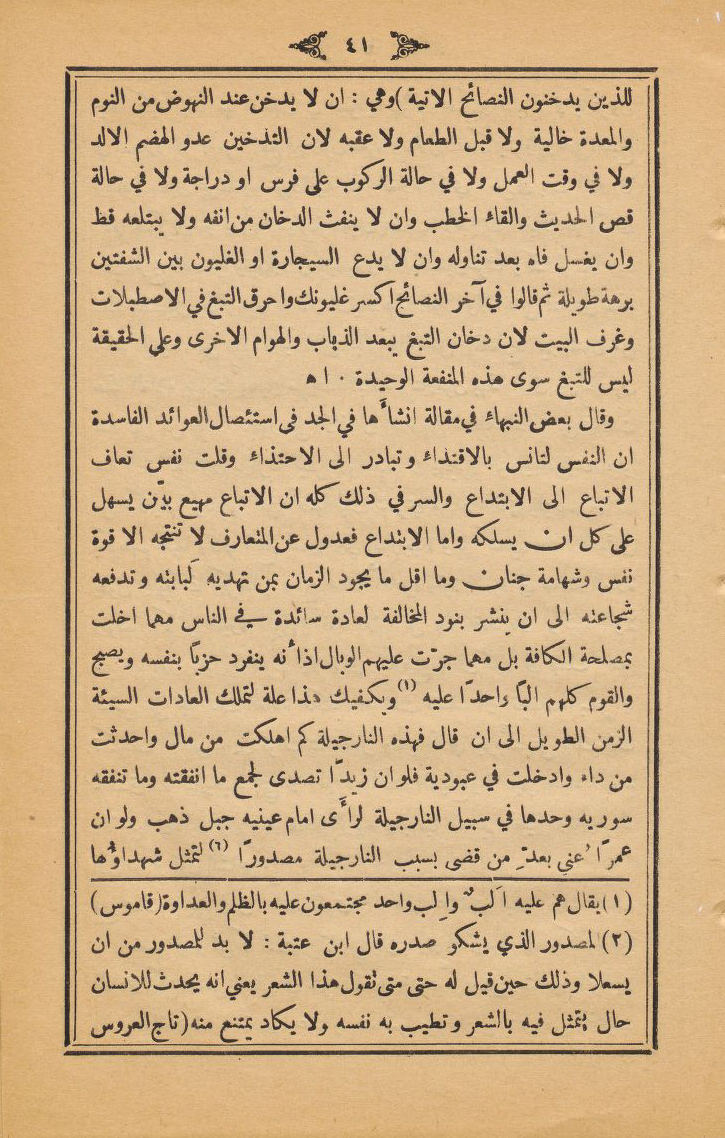 ٤١
للذين يدخنون النصائح الاتية )وهي : ان لا يدخن عند النهوض من النوم
والمعدة خالية ولا قبل الطعام ولا عقبه لان التدخين عدو الهضم الالد
ولا في وقت العمل ولا في حالة الركوب على فرس او دراجة ولا في حالة
قص الحديث والقاء الخطب وان لا ينفث الدخان من انفه ولا يبتلعه قط
وان يغسل فاه بعد تناوله وان لا يدع السيجارة او الغليون بين الشفتين
برهة طويلة ثم قالوا في آخر النصائح اكسر غليونك واحرق التبغ في الاصطبلات
وغرف البيت لان دخان التبغ يبعد الذباب والهوام الاخرى وعلى الحقيقة
ليس للتبغ سوى هذه المنفعة الوحيدة ٠ ا ه
وقال بعض النبهاء في مقالة انشأَ ها في الجد فى استئصال العوائد الفاسدة
ان النفس لتانس بالاقتداء وتبادر الى الاحتذاء وقلت نفس تعاف
الاتباع الى الابتداع والسر في ذلك كله ان الاتباع مهيع بيّن يسهل
على كل ان يسلكه واما الابتداع فعدول عن المتعارف لا تنتجه الا قوة
نفس وشهامة جنان وما اقل ما يجود الزمان بمن تهديه لبابته وتدفعه
شجاعته الى ان ينشر بنود المخالفة لعادة سائدة في الناس مهما اخلت
بمصلحة الكافة بل مهما جرّت عليهم الوبال اذا أنه ينفرد حزبًا بنفسه ويصبح
والقوم كلهم البًا واحدًا عليه (١) ويكفيك هذا علة لتملك العادات السيئة
الزمن الطويل الى ان قال فهذه النارجيلة كم اهلكت من مال واحدثت
من داء وادخلت في عبودية فلو ان زيدًا تصدى لجمع ما انفقته وما تنفقه
سوريه وحدها في سبيل النارجيلة لرأَى امام عينيه جبل ذهب ولو ان
عمرًا عني بعدّ من قضى بسبب النارجيلة مصدورًا (٦) لتمثل شهداؤها
(١) يقال هم عليه اَلبٌ واِلب واحد مجتمعون عليه بالظلم والعداوة (قاموس)
(٢) المصدور الذي يشكو صدره قال ابن عتبة : لا بد للمصدور من ان
يسعلا وذلك حين قيل له حتى متى تقول هذا الشعر يعني انه يحدث للانسان
حال يتمثل فيه بالشعر وتطيب به نفسه ولا يكاد يمتنع منه (تاج العروس